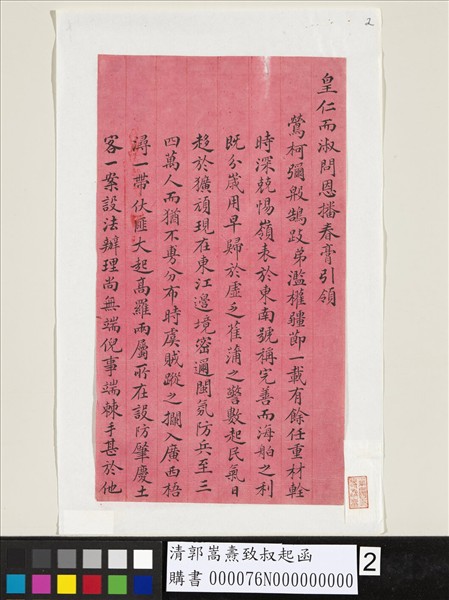 2
皇仁而淑問恩播春膏引領
鶯柯彌殷鵠跂弟濫權疆節一載有餘任重材輇
時深兢惕嶺表於東南號稱完善而海舶之利
既分歲用早歸於虛乏萑蒲之警數起民氣日
趨於獷頑現在東江邊境密邇閩氛防兵至三
四萬人而猶不旉分布時虞賊蹤之攔入廣西梧
潯一帶伏匪大起高羅兩屬所在設防肇慶土
客一案設法辦理尚無端倪事端棘手甚於他
清郭嵩燾致叔起函
購書 000076N000000000
2